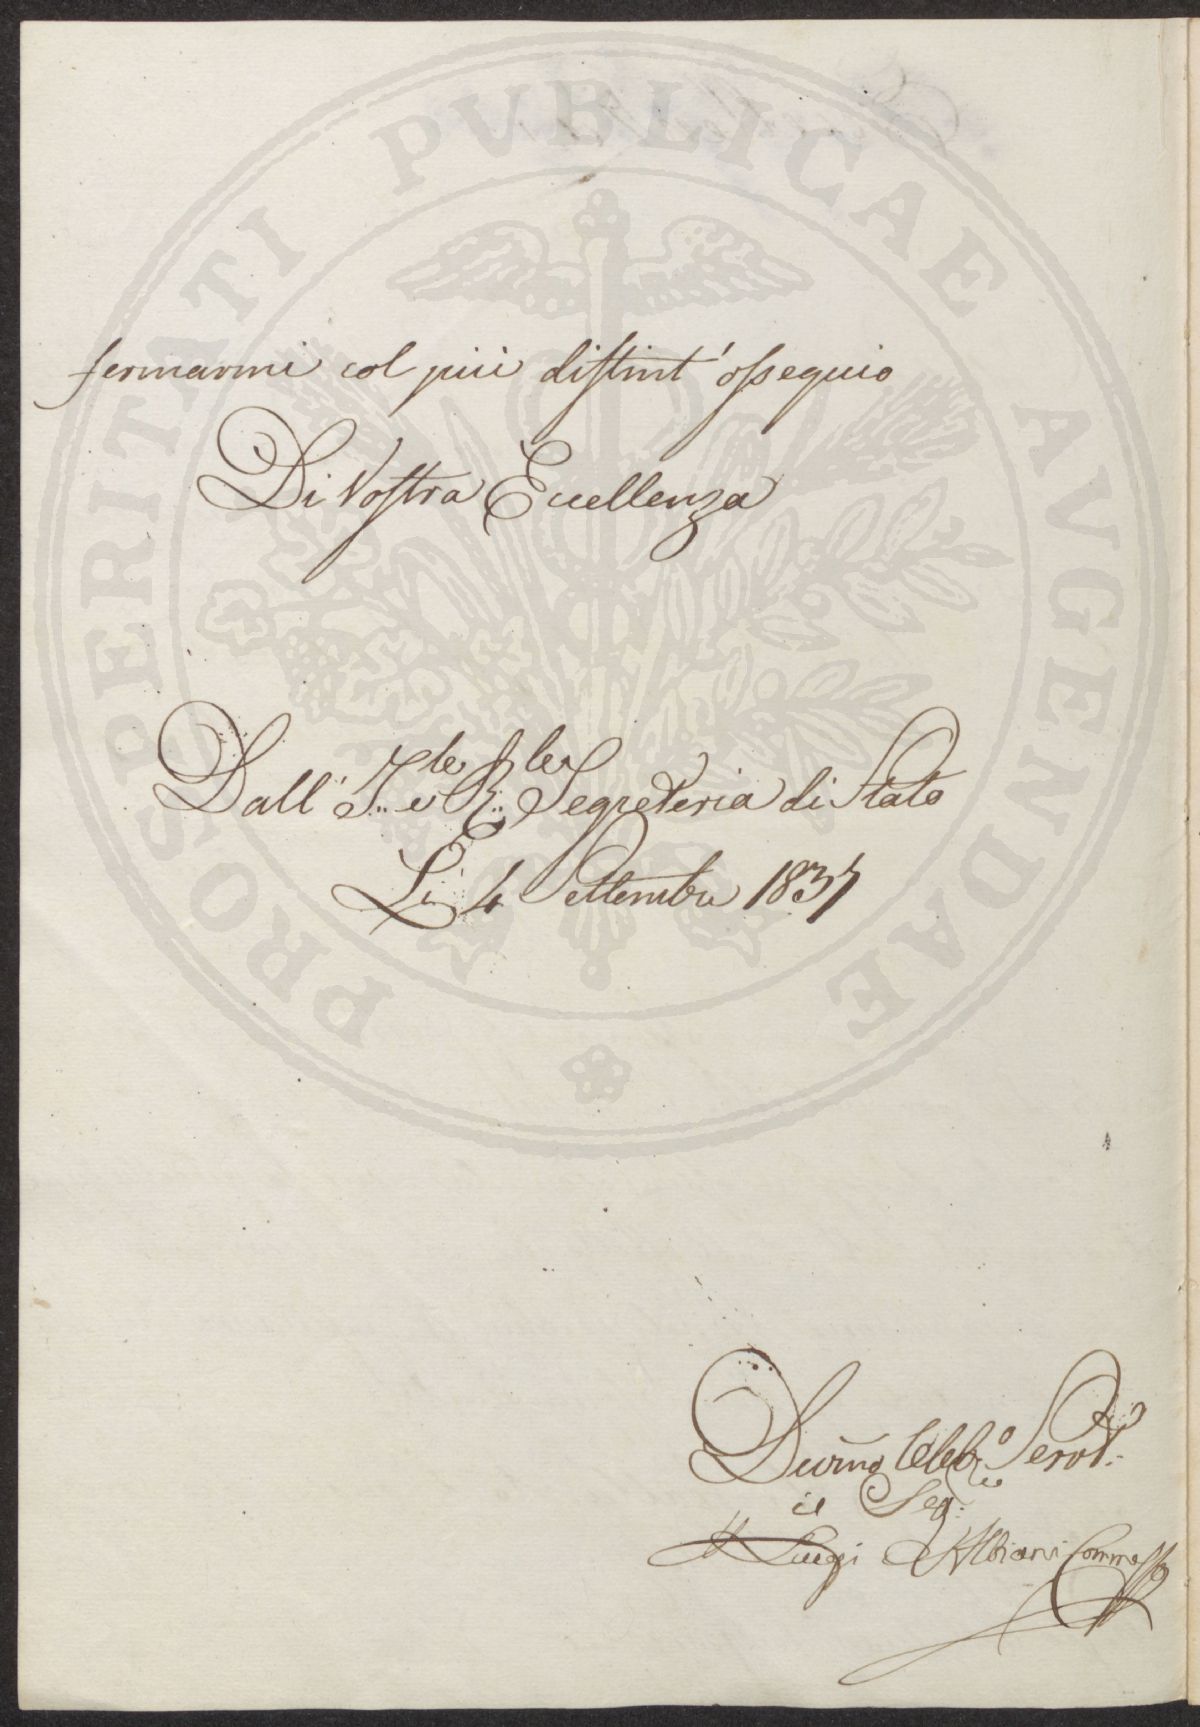 PROSPERITATI PUBLICAE AVGENDAE
fermarmi col più distint' ossequio
Di Vostra Eccellenza
Dall' I.le e R.le Segreteria di Stato
Li 4 Settembre 1837
Servt.
il Seg:
Luigi Albiani Commesso